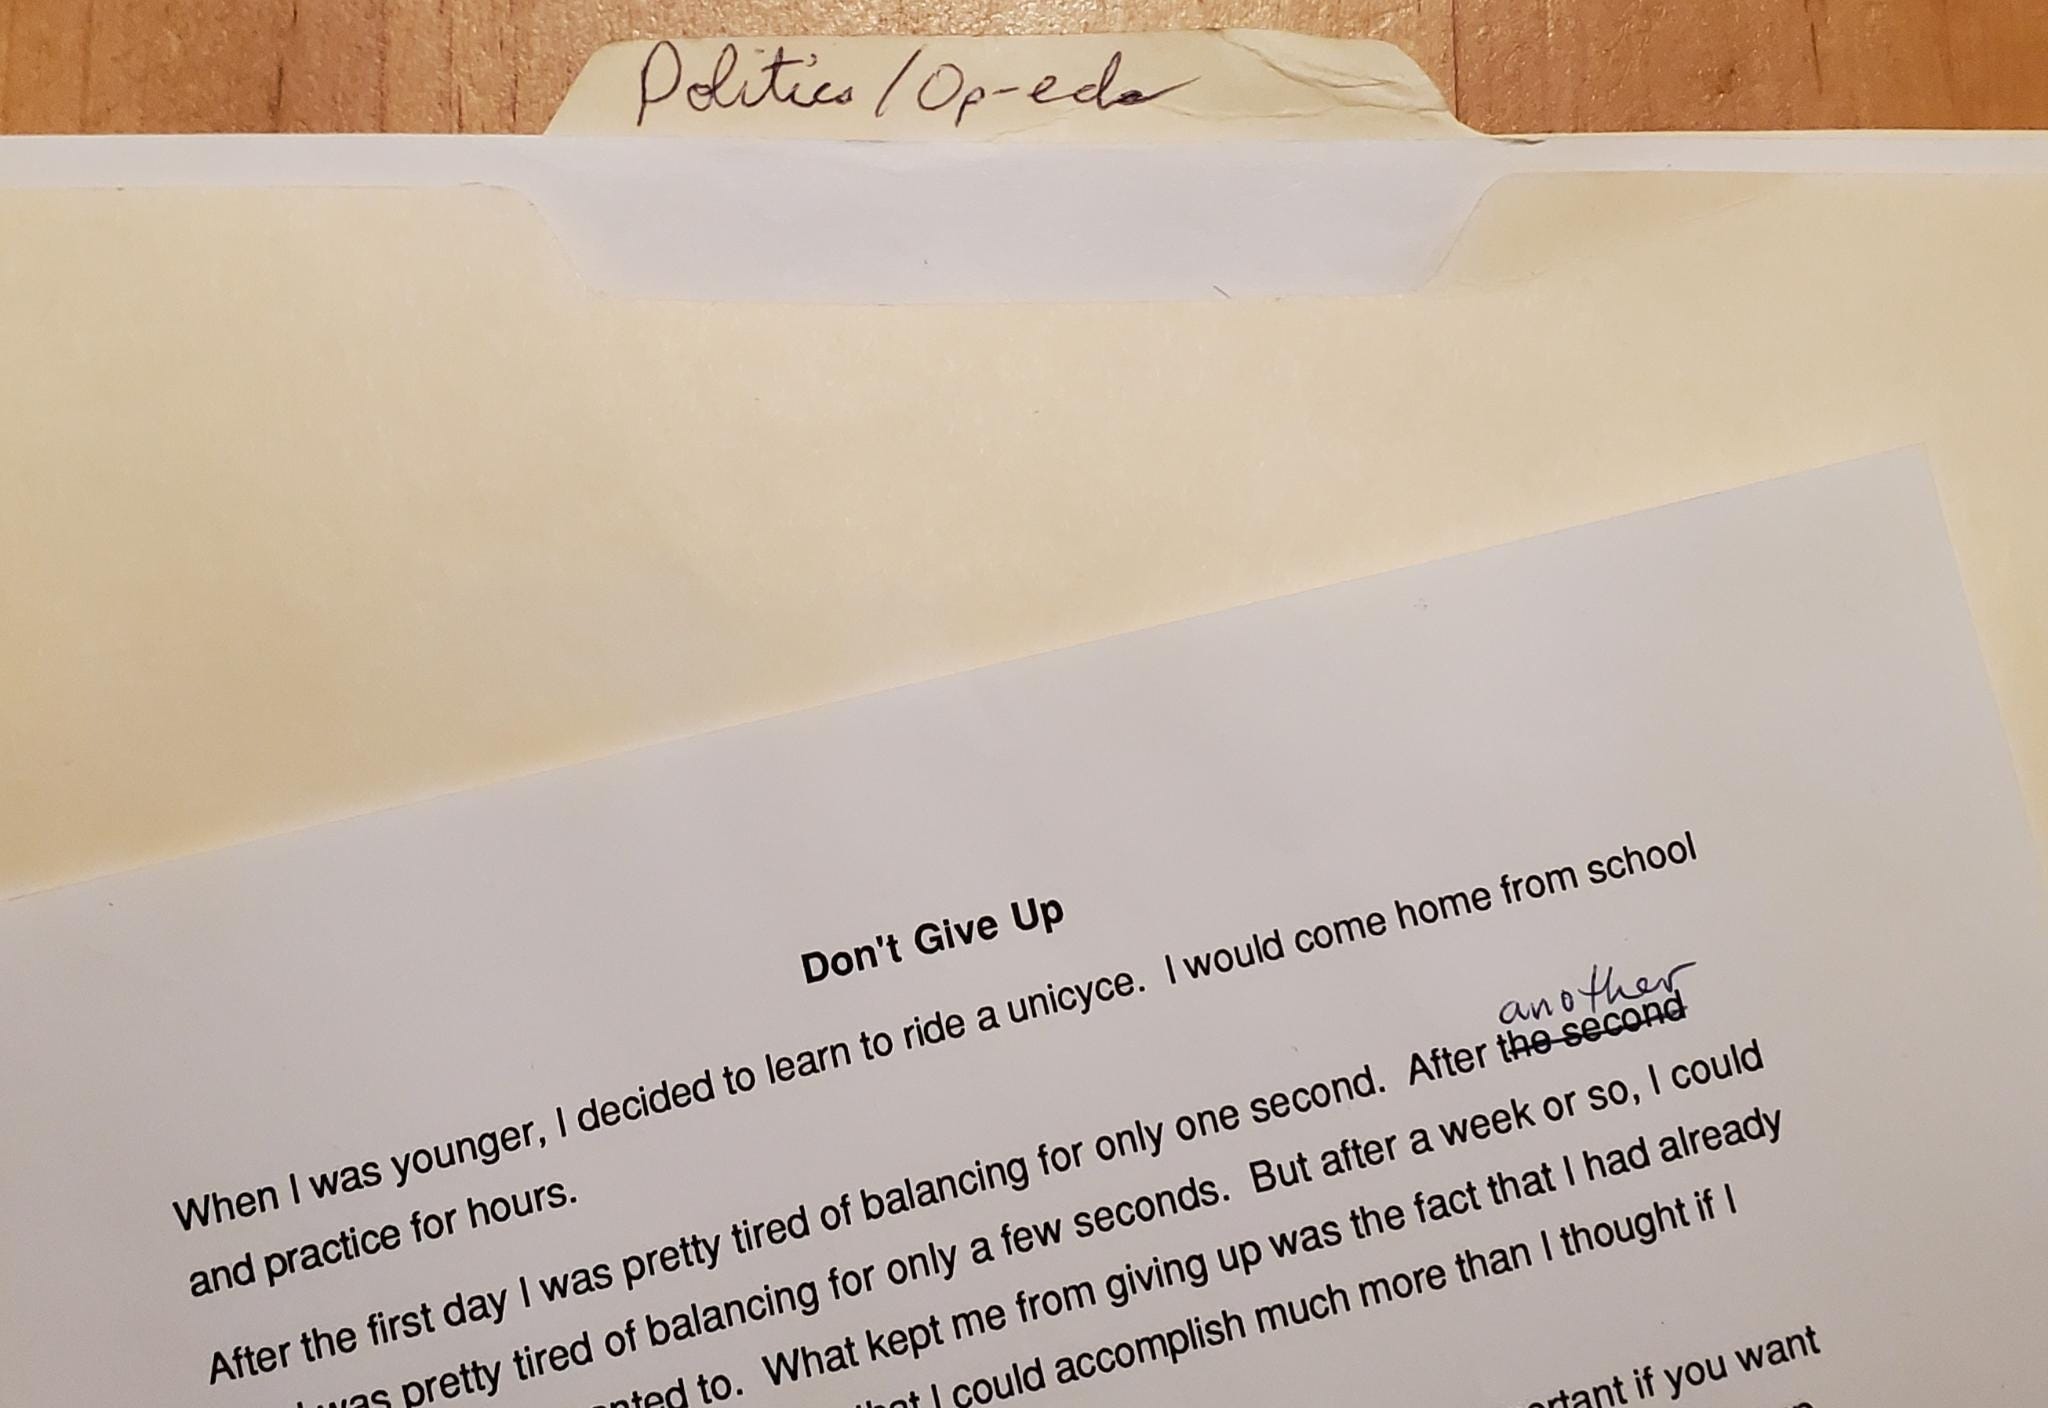 Politics/Op-eds
Don't Give Up
When I was younger, I decided to learn to ride a unicyce. I would come home from school
and practice for hours.
another
After the first day I was pretty tired of balancing for only one second. After the second
was pretty tired of balancing for only a few seconds. But after a week or so, I could
to. What kept me from giving up was the fact that I had already
I could accomplish much more than I thought if I
if you want